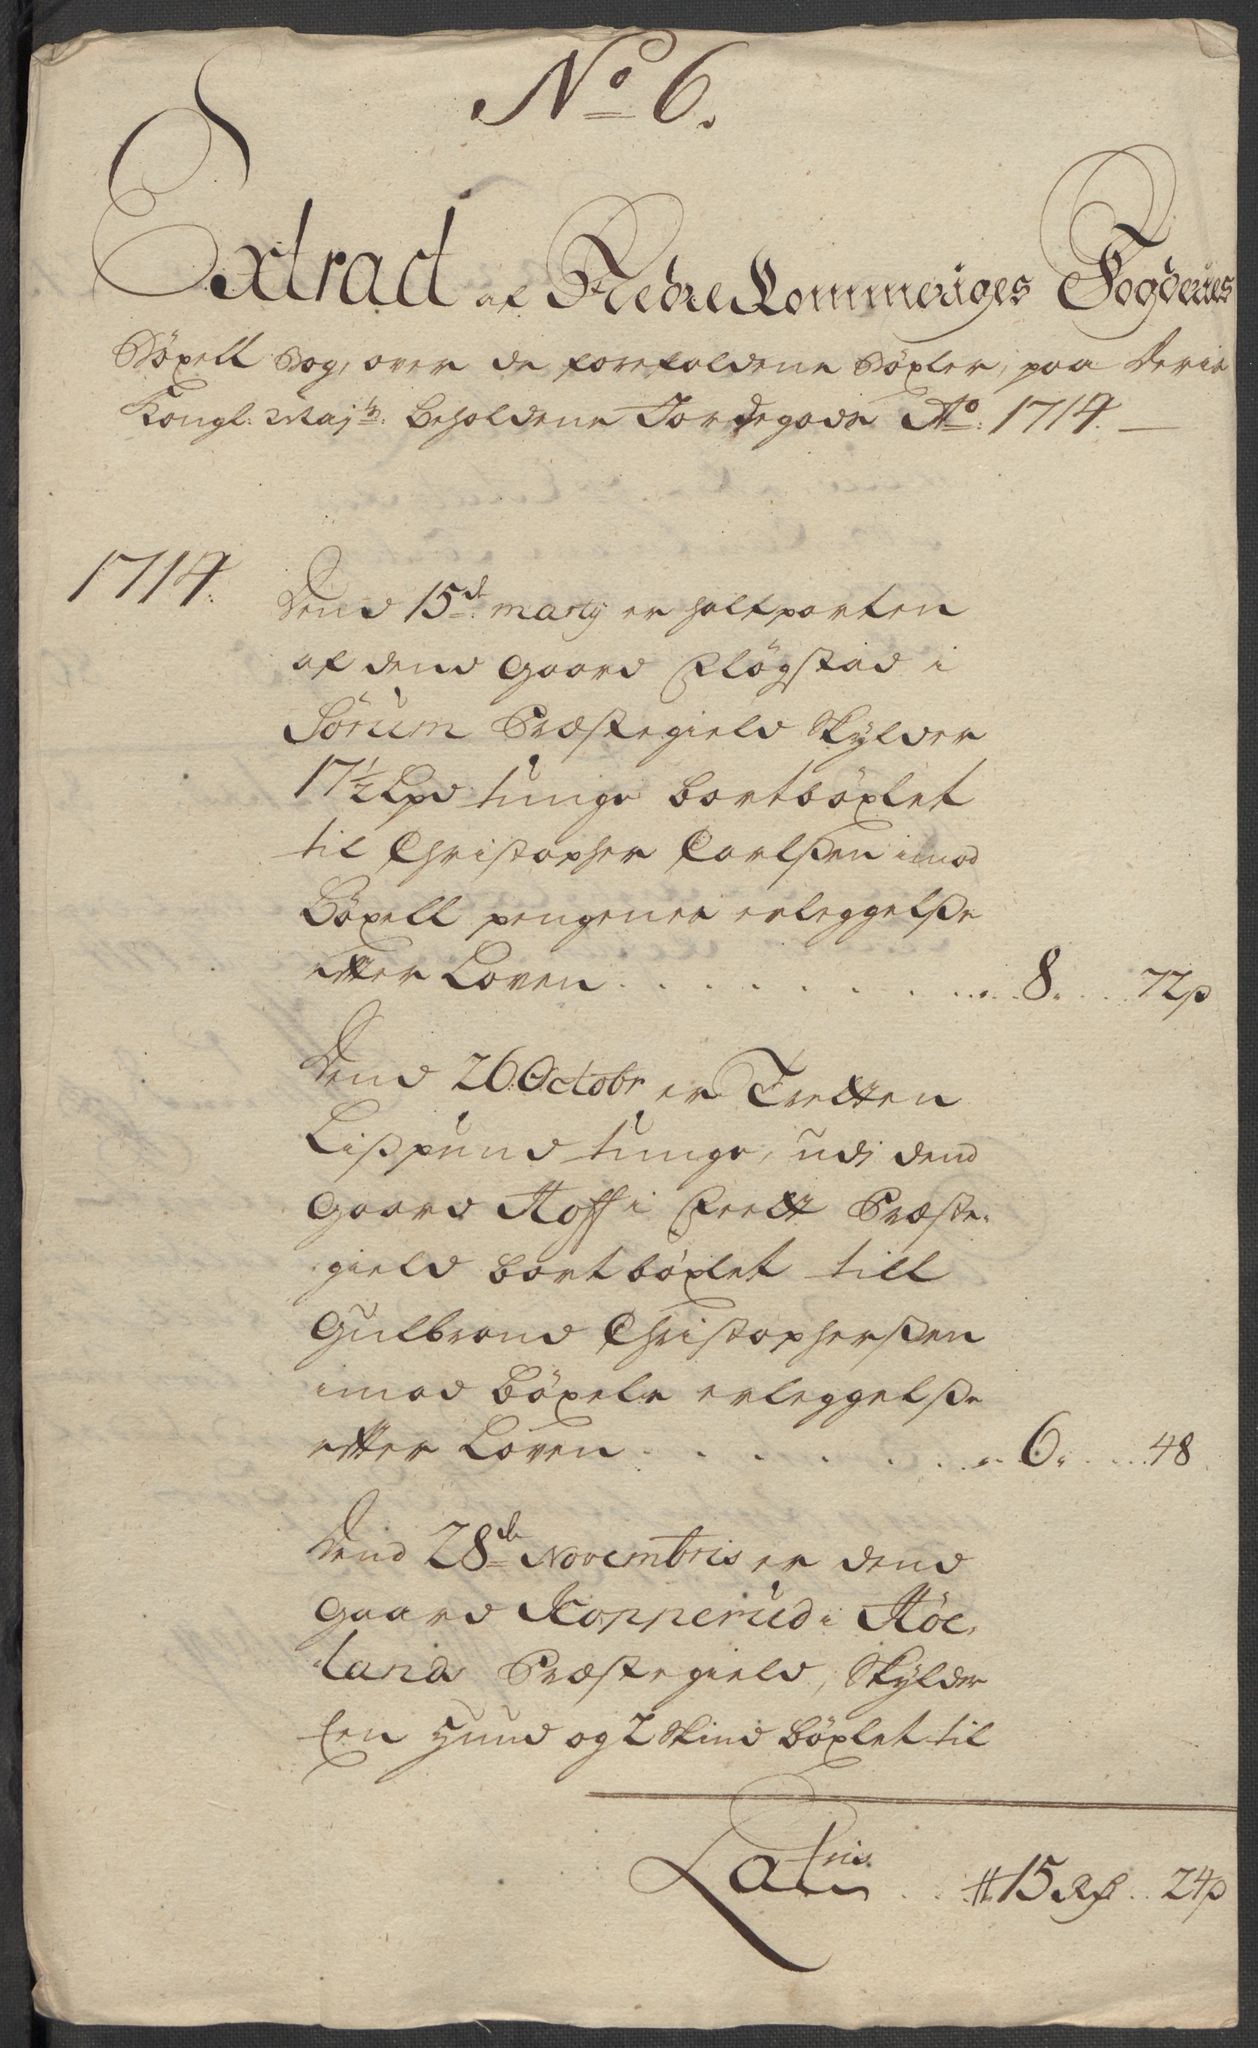 No 6.
Extract af Nedre Rommeriges Fogderies
Böxell Bog, over de forefaldene Böxler, paa Deris
Kongl: Maj:tz Beholdene Jordegods Ao: 1714.
1714.
Dend 15de marty er halfparten
af dend Gaard Fløgstad i
Sörum Præstegield Skylder
17½ Lpd tunge bortböxlet
til Christopher Carlßen imod
Böxell pengenes erleggelße
etter Loven . . . . . . . . . 8. . . . 72 s
Dend 26 Octobr er Tretten
Lißpund tunge, udj dend
Gaard Hoff i Feedt Præste-
gield bortböxlet till
Gulbrand Christopherßen
imod böxels erleggelße
etter Loven . . . . . . . . . 6. . . . 48
Dend 28de Novembris er dend
Gaard Kopperud i Höe-
land Præstegield, Skylder
Een Hund og 2 Skind böxlet til
Latris . . # 15 Rd . . 24 s